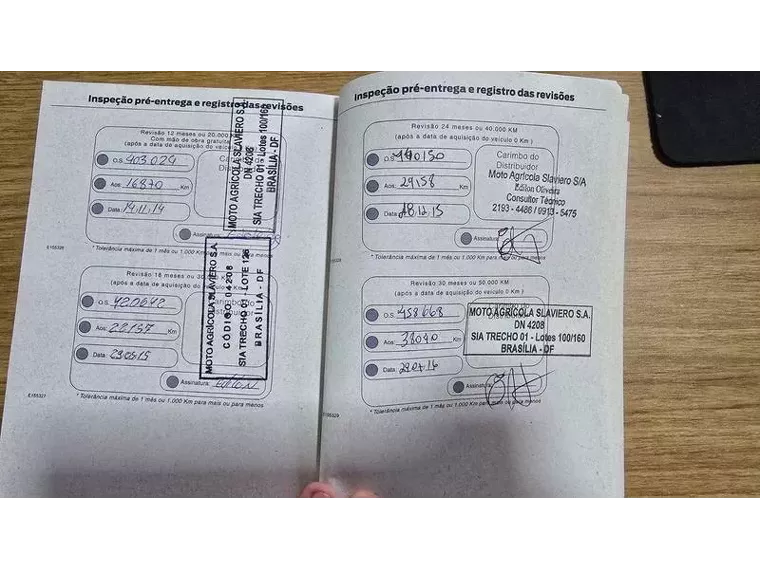 Inspeção pré-entrega e registro das revisões
Revisão 12 meses ou 20.000
Com mão de obra gratuita
(após a data de aquisição do veículo
O.S. 403024
Aos: 16870 Km
Data: 14.11.14
Carimbo do
Distribuidor
MOTO AGRÍCOLA SLAVIERO S.A.
DN 4208
SIA TRECHO 01 - Lotes 100/160
BRASÍLIA - DF
Assinatura:
E165326
* Tolerância máxima de 1 mês ou 1.000 Km para mais ou para menos
Revisão 18 meses ou 30
(após a data de aquisição do veículo 0 Km)
O.S. 420642
Aos: 22157 Km
Data:
MOTO AGRÍCOLA SLAVIERO S.A.
CÓDIGO 04208
SIA TRECHO 01 - LOTE 125
BRASÍLIA - DF
Assinatura:
E165327
* Tolerância máxima de 1 mês ou 1.000 Km para mais ou para menos
Inspeção pré-entrega e registro das revisões
Revisão 24 meses ou 40.000 KM
(após a data de aquisição do veículo 0 Km)
O.S.
Aos: 29158 Km
Data: 18.12.15
Carimbo do
Distribuidor
Moto Agrícola Slaviero S/A
Edilon Oliveira
Consultor Técnico
2193 - 4486 / 9913 - 5475
Assinatura:
* Tolerância máxima de 1 mês ou 1.000 Km para mais ou para menos
Revisão 30 meses ou 50.000 KM
(após a data de aquisição do veículo 0 Km)
O.S. 458668
Aos: 38040 Km
Data:
Carimbo do
MOTO AGRÍCOLA SLAVIERO S.A.
DN 4208
SIA TRECHO 01 - Lotes 100/160
BRASÍLIA - DF
Assinatura:
* Tolerância máxima de 1 mês ou 1.000 Km para mais ou para menos